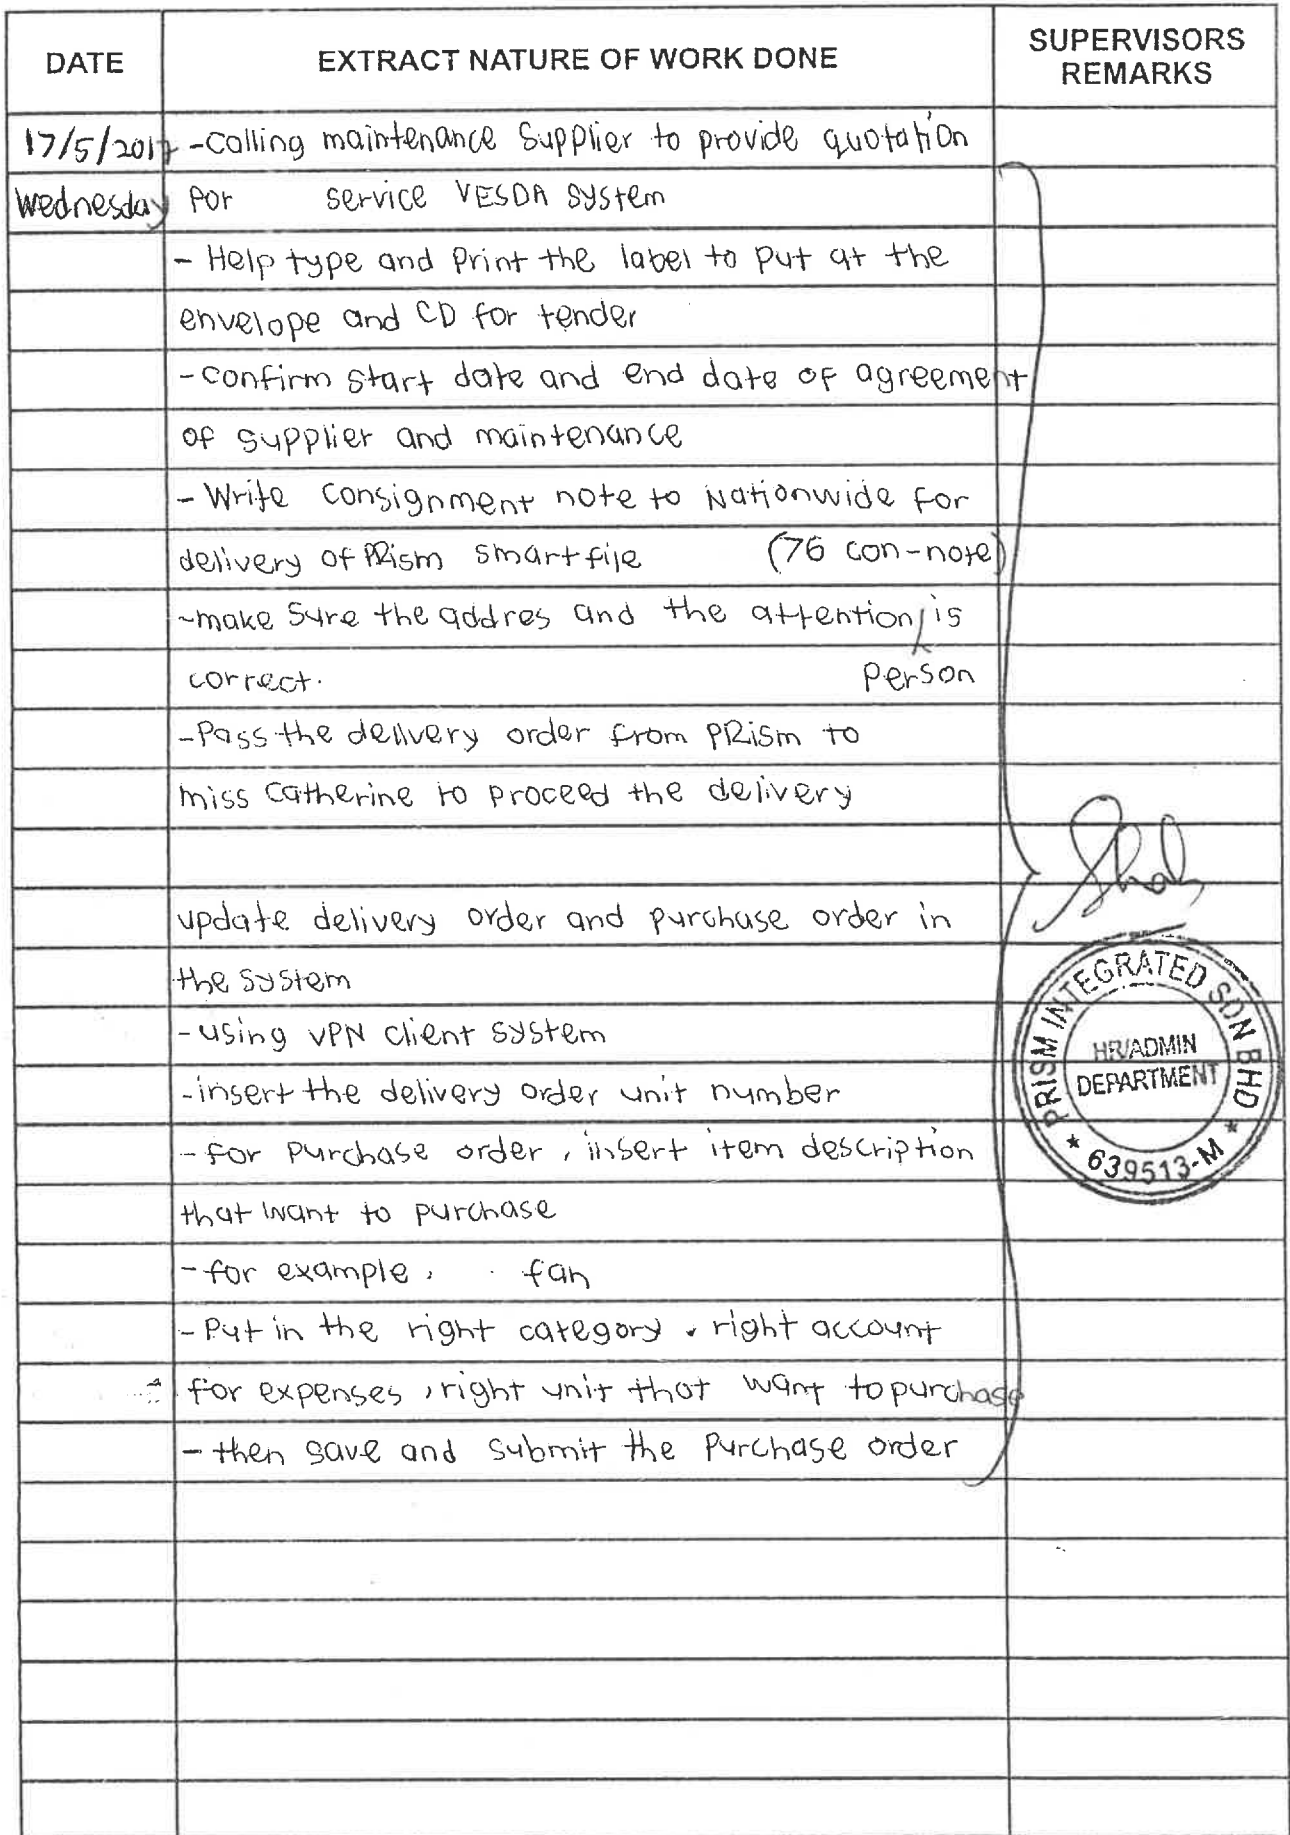 DATE EXTRACT NATURE OF WORK DONE SUPERVISORS REMARKS
17/5/2017 -Calling maintenance Supplier to provide quotation
Wednesday for service VESDA system
- Help type and Print the label to put at the
envelope and CD for tender
-confirm start date and end date of agreement
of supplier and maintenance
- Write consignment note to Nationwide for
delivery of PRism smart file (76 con-note)
-make sure the addres and the attention is
correct. person
-Pass the delivery order from PRism to
miss Catherine to proceed the delivery
update delivery order and purchase order in
the system
-using VPN client system
-insert the delivery order unit number
-for purchase order, insert item description
that want to purchase
-for example, fan
-Put in the right category, right account
for expenses, right unit that want to purchase
-then save and submit the purchase order
PRISM INTEGRATED SDN BHD
HR/ADMIN
DEPARTMENT
* 639513-M *